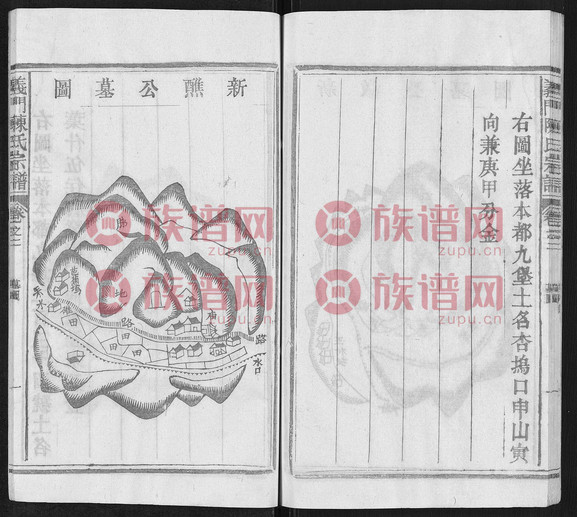 右圖坐落本都九堡土名杏塢口申山寅
向兼庚甲分金
義門陳氏宗譜
卷之二
新醮公墓圖
義門陳氏宗譜
卷之二
墓圖
一
地
路
田
田
田
田
路
水口
族谱网
zupu.cn
族谱网
zupu.cn
族谱网
zupu.cn
族谱网
zupu.cn